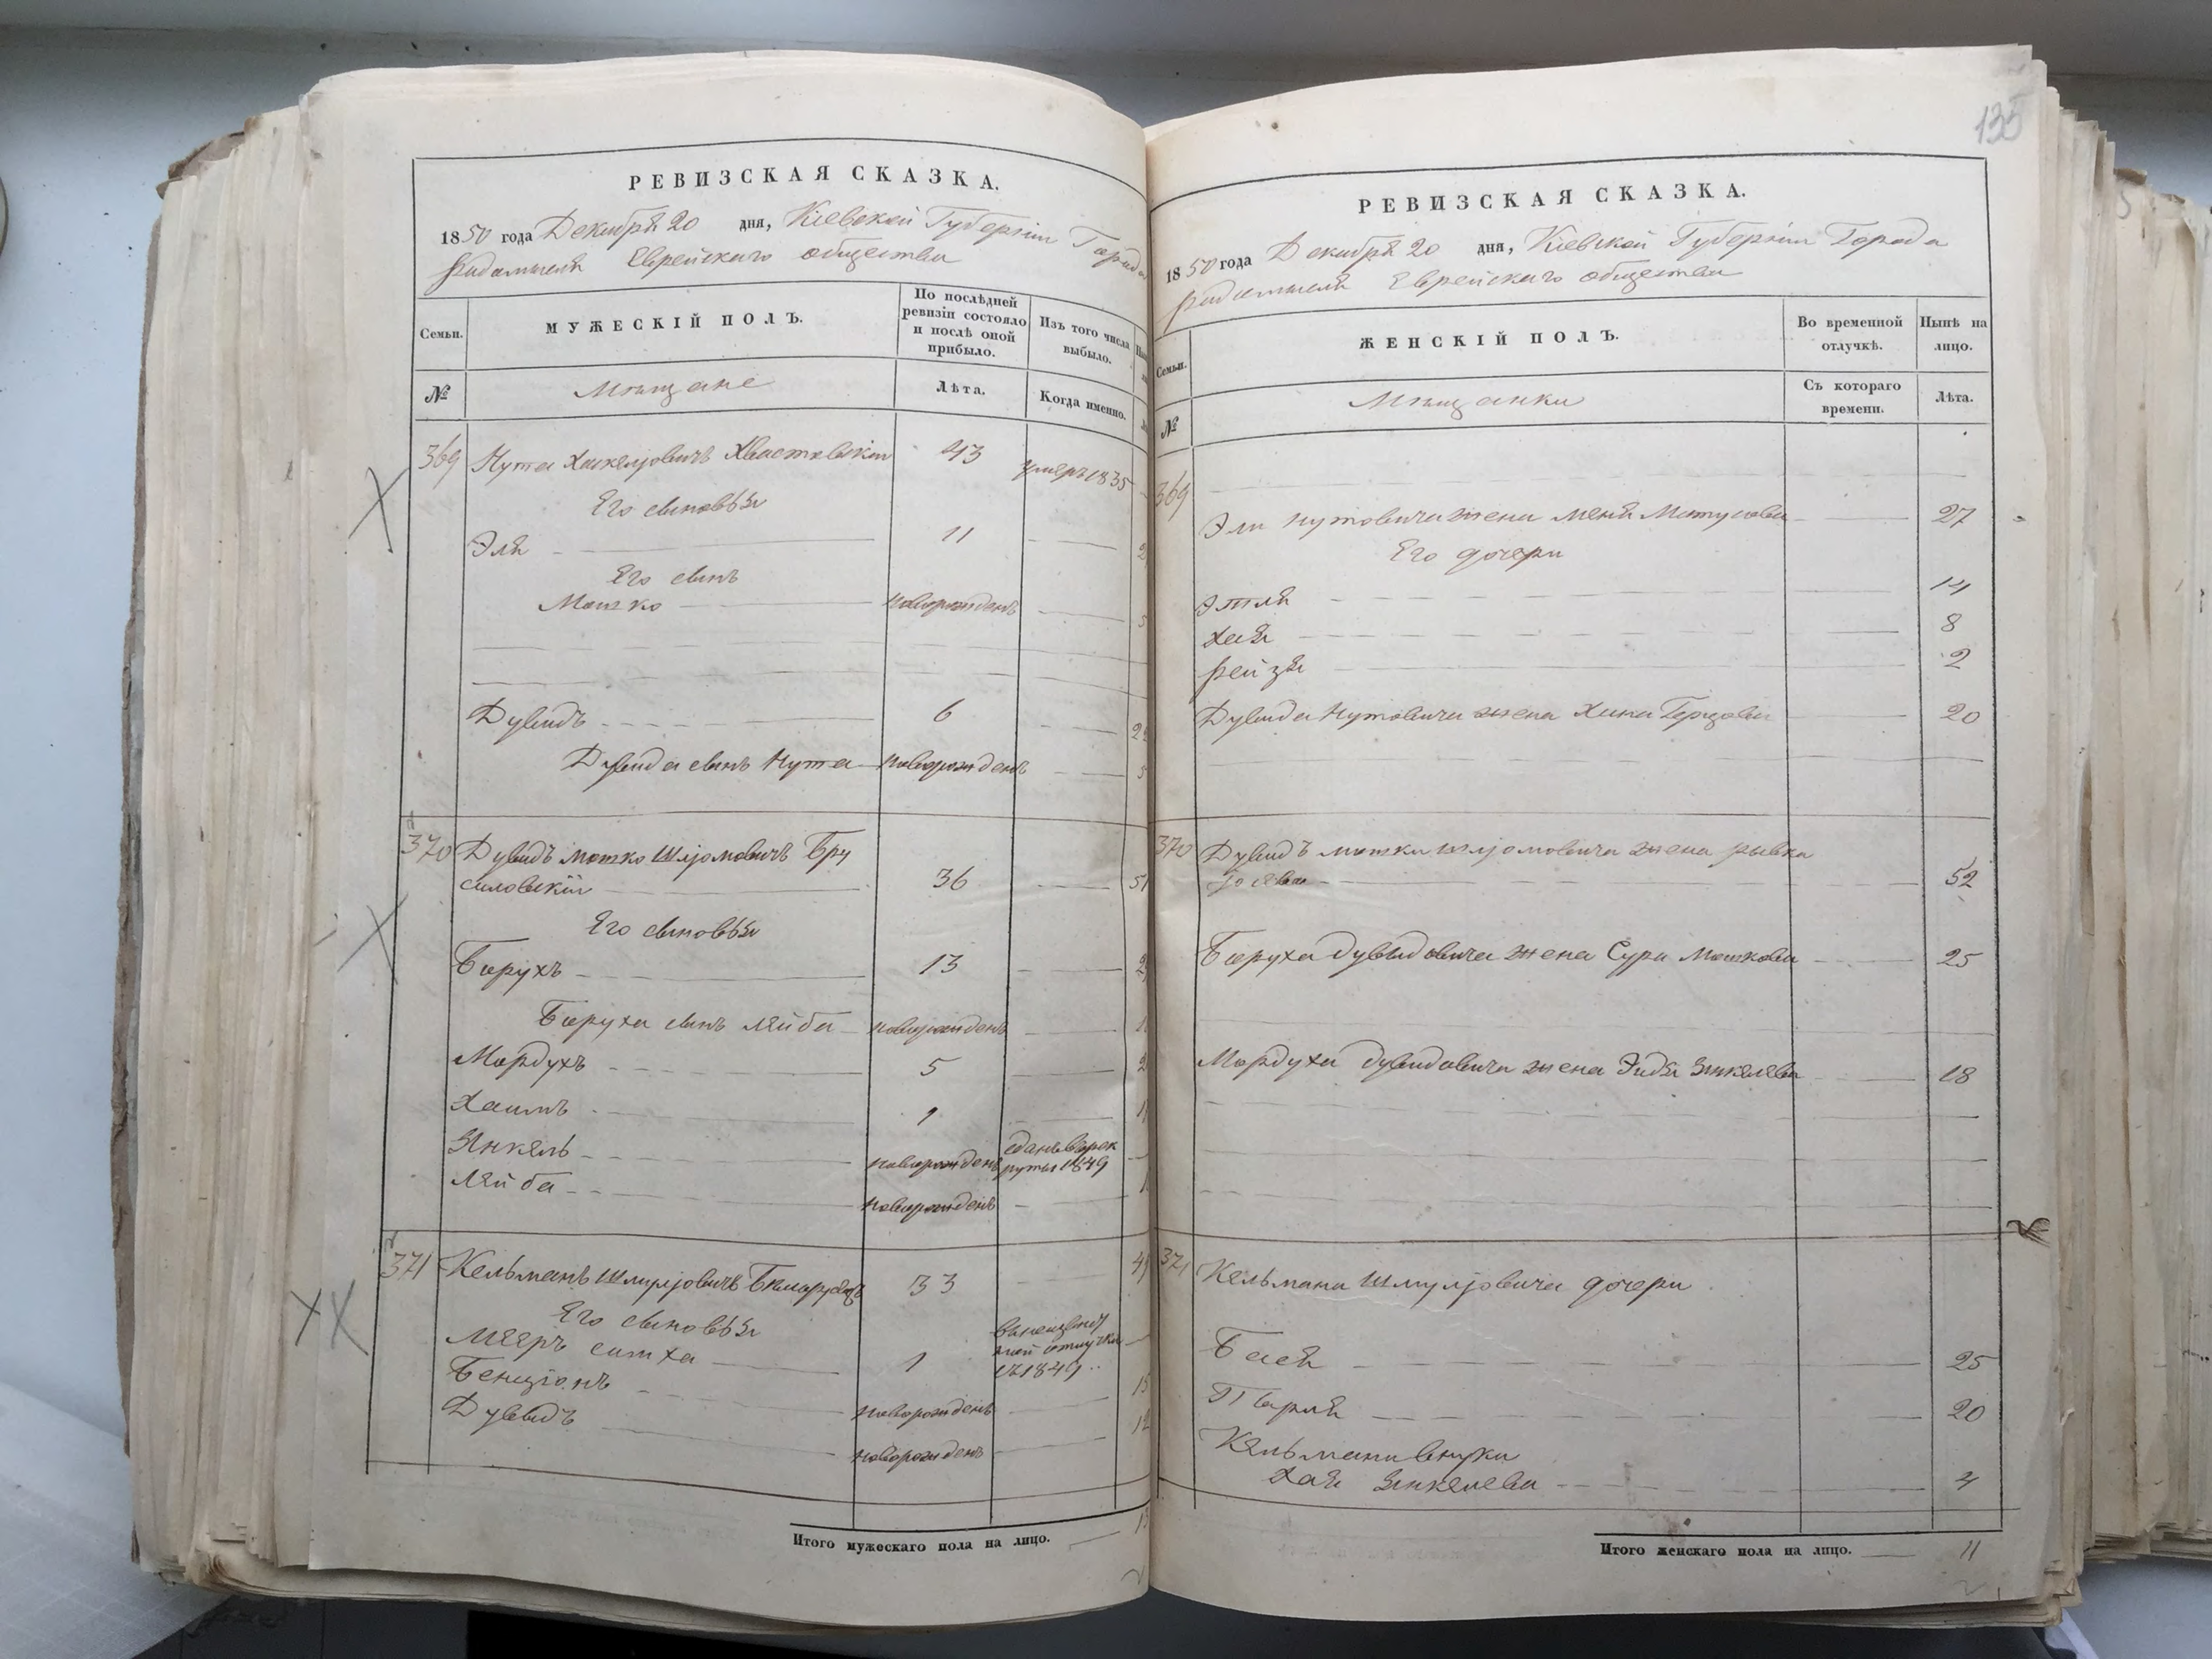 РЕВИЗСКАЯ СКАЗКА.
1850 года Декабря 20 дня, Кіевской Губерніи Города
Радомысля Еврейскаго общества
Семьи.
МУЖЕСКІЙ ПОЛЪ.
По послѣдней ревизіи состояло и послѣ оной прибыло.
Изъ того числа выбыло.
№
Мѣщане
Лѣта.
Когда именно.
369 Нута Хаскелјовичъ Хвастовскій 43 умеръ 1835
Его сыновѣя
Эля 11
Его сынъ
Мошко новорожденъ
Дувидъ 6
Дувида сынъ Нута новорожденъ
370 Дувидъ мошко Шлјомовичъ Бру
силовскій 36 51
Его сыновѣя
Борухъ 13
Боруха сынъ Лейба новорожденъ
Мордухъ 5
Хаимъ 1
Янкель новорожденъ сданъ в рек
руты 1849
Лейба новорожденъ
371 Кельманъ Шмулјовичъ 33
Его сыновѣя
Мееръ симха 1
отлучки
с 1849
Бенціонъ новорожденъ 15
Дувидъ новорожденъ 12
Итого мужескаго пола на лицо.
135
РЕВИЗСКАЯ СКАЗКА.
1850 года Декабря 20 дня, Кіевской Губерніи Города
Радомысля Еврейскаго общества
Семьи.
ЖЕНСКІЙ ПОЛЪ.
Во временной отлучкѣ.
Нынѣ на лицо.
№
Мѣщанки
Съ котораго времени.
Лѣта.
369
Эли Нутовича жена Меня Мотусова 27
Его дочери
Этля 14
Хая 8
Рейзя 2
Дувида Нутовича жена Хика Герцова 20
370 Дувидъ мошки шлјомовича жена рывка
52
Боруха Дувидовича жена Сура Мошкова 25
Мордуха Дувидовича жена Эйдя Янкелева 18
371 Кельмана Шмулјовича дочери
Бася 25
Перля 20
Кельмана внучки
Хая Янкелева 4
Итого женскаго пола на лицо. 11